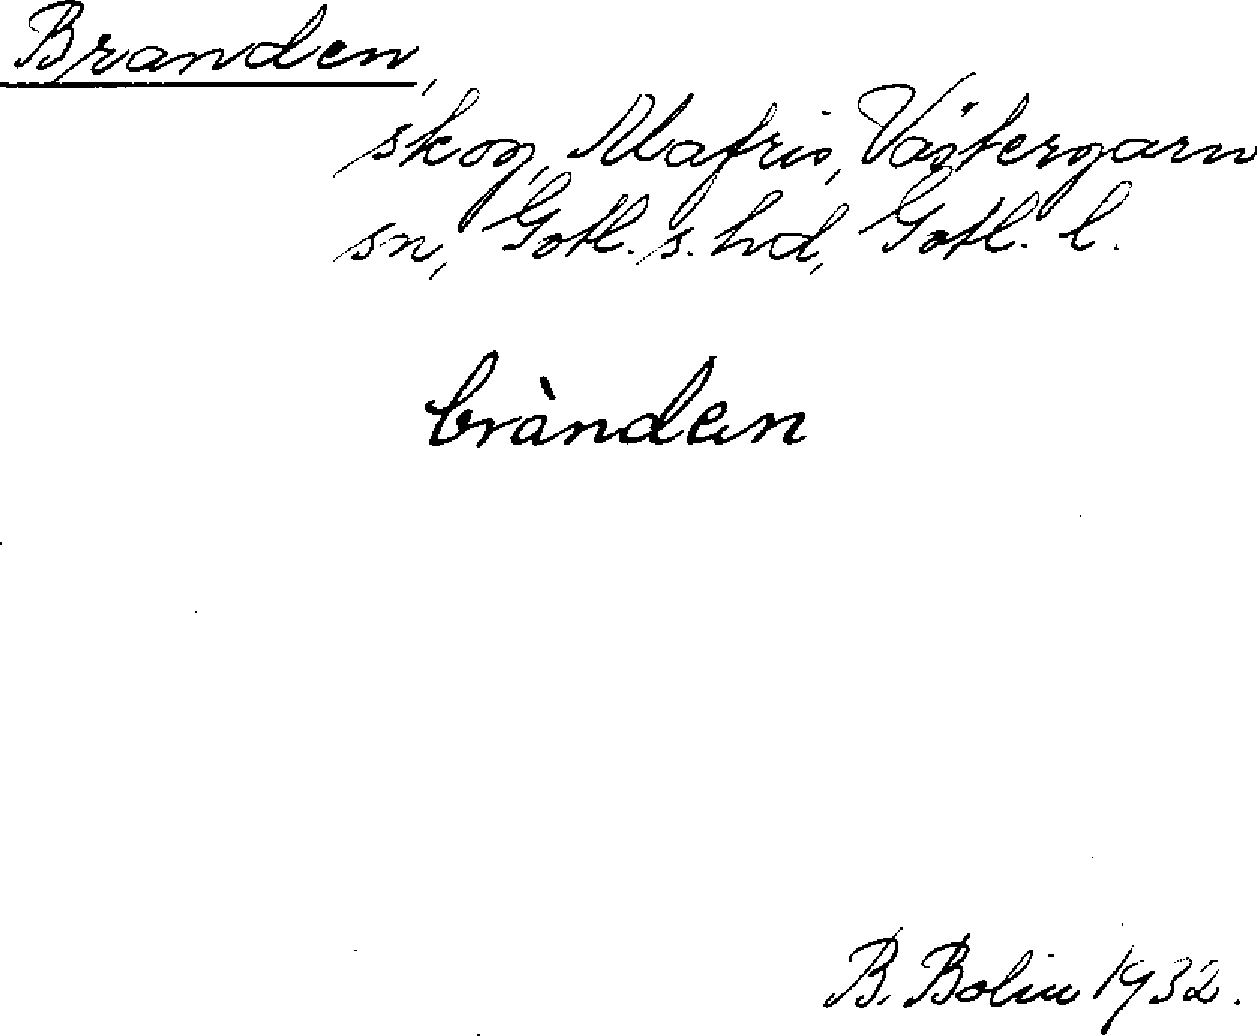 Branden,
skog, Mafris, Västergarn
sn, Gotl. s. hd, Gotl. l.
brànden
B. Bolin 1932.